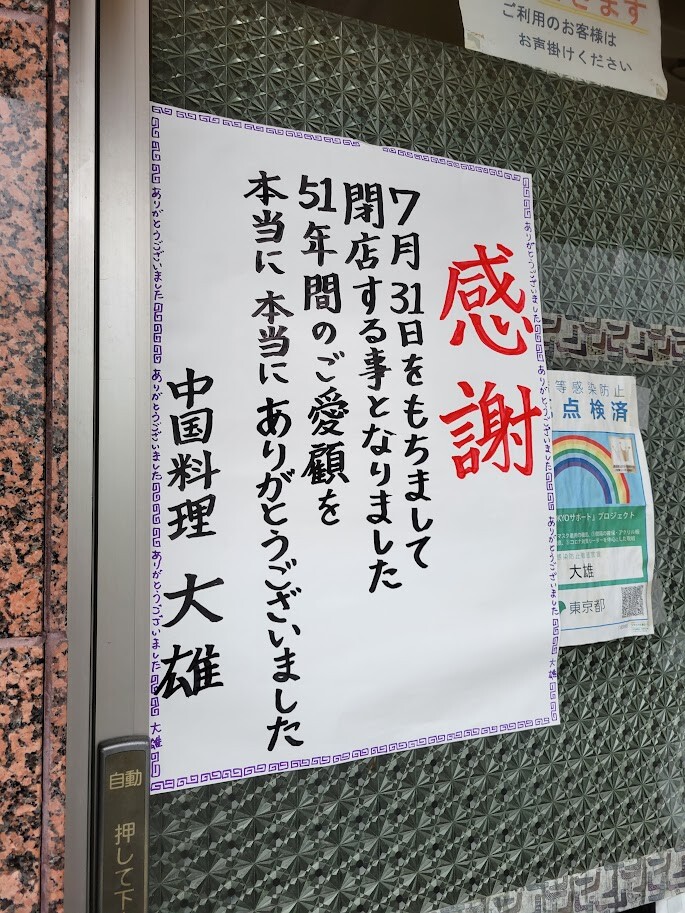 感謝
7月31日をもちまして
閉店する事となりました
51年間のご愛顧を
本当に本当にありがとうございました
中国料理 大雄
ありがとうございました
ありがとうございました
ありがとうございました
大雄
ありがとうございました
ありがとうございました
ありがとうございました
大雄
ます
ご利用のお客様は
お声掛けください
等感染防止
点検済
サポート」プロジェクト
大雄
東京都
自動
押して下